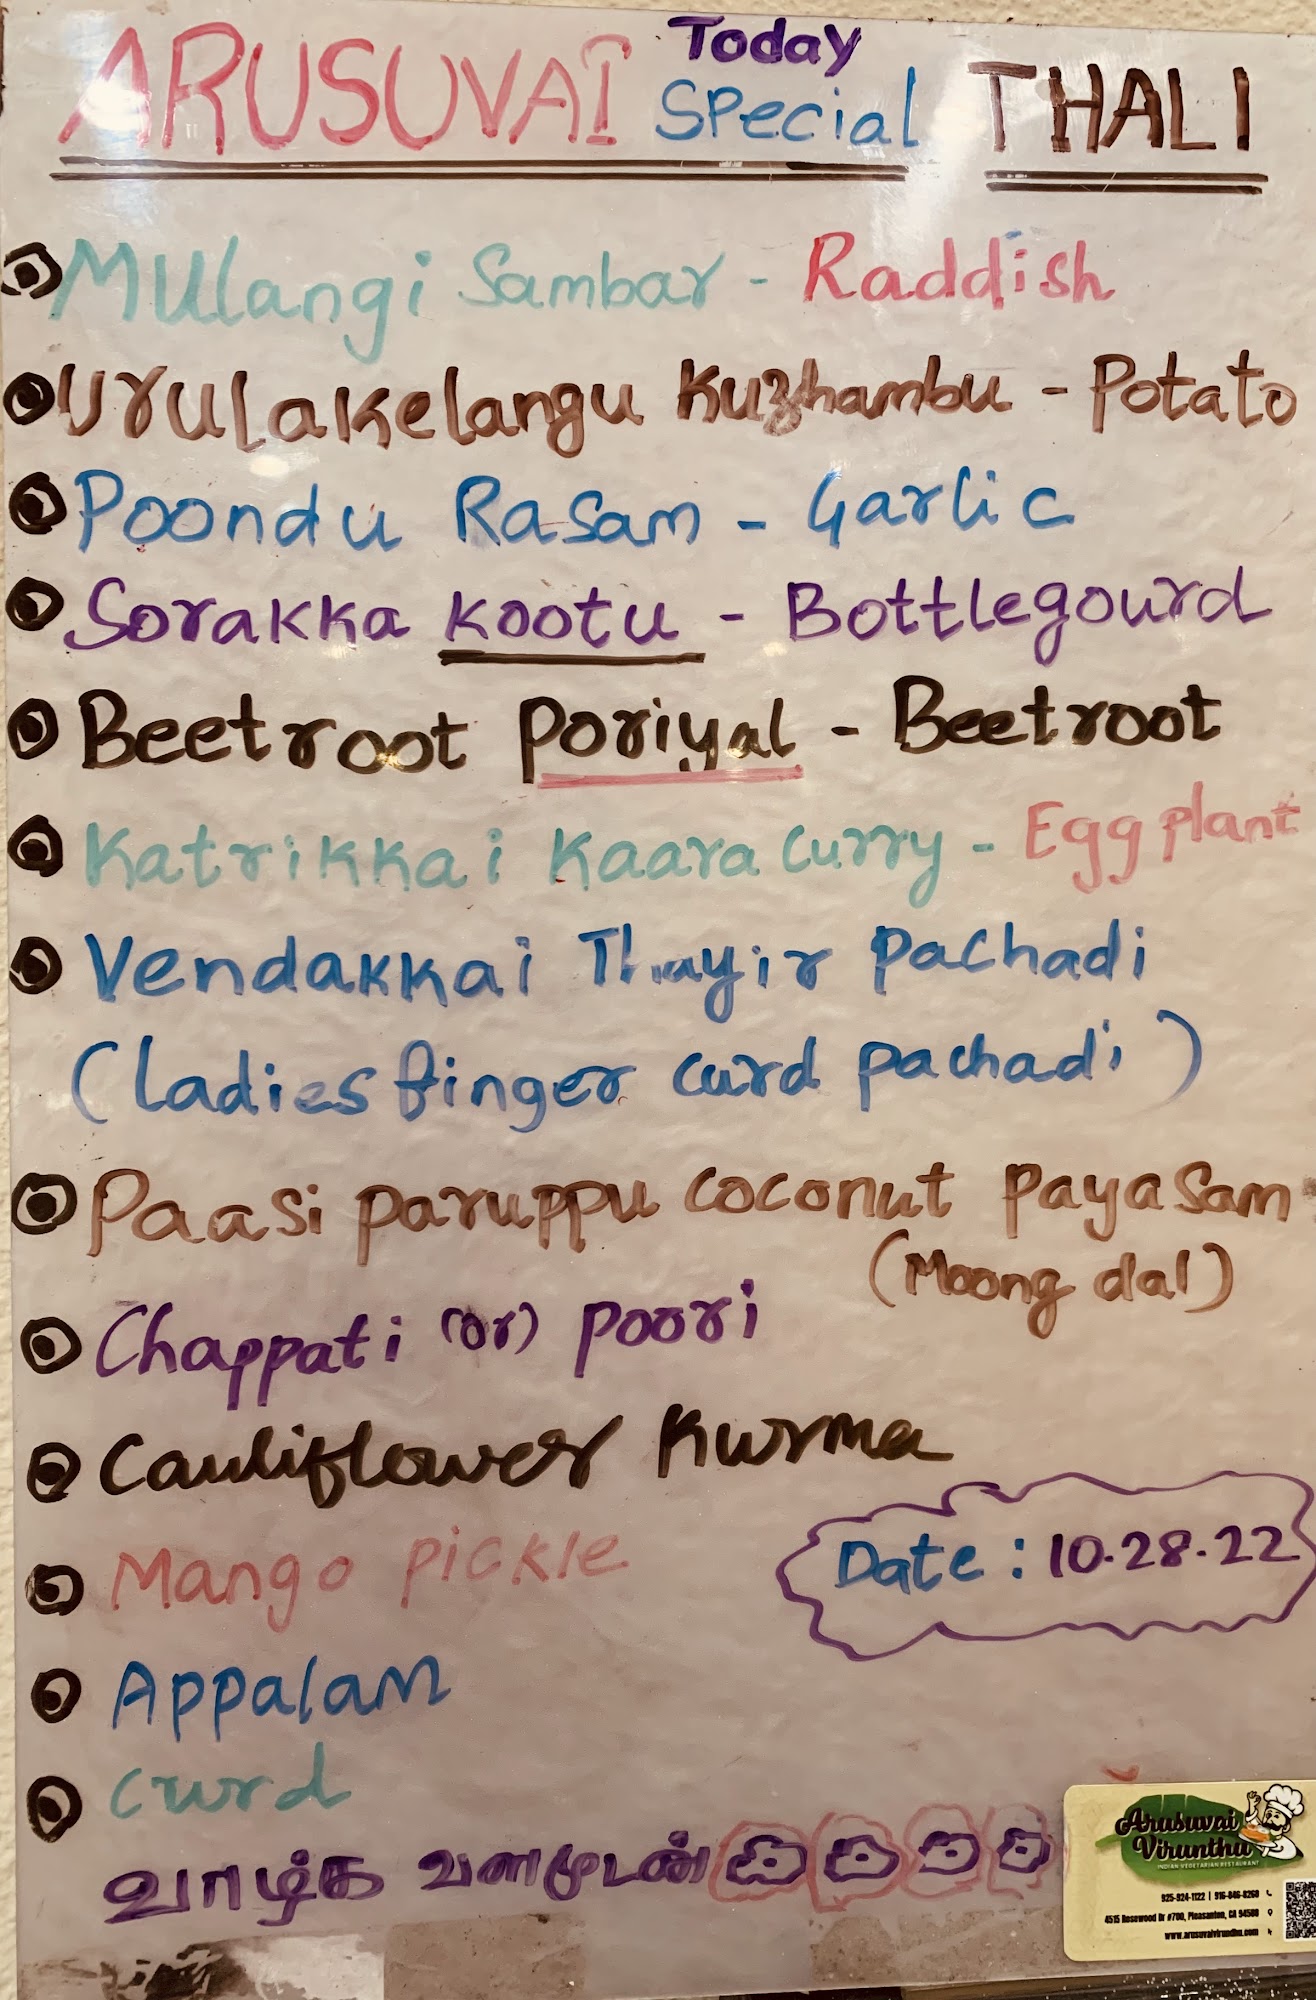 ARUSUVAI Today Special THALI
Mulangi Sambar - Raddish
Urulakelangu Kuzhambu - Potato
Poondu Rasam - Garlic
Sorakka Kootu - Bottlegourd
Beetroot Poriyal - Beetroot
Katrikkai Kaara Curry - Egg plant
Vendakkai Thayir Pachadi
(Ladies finger curd pachadi)
Paasi paruppu coconut payasam
(Moong dal)
Chappati (or) poori
Cauliflower Kurma
Mango pickle
Date : 10.28.22
Appalam
Curd
வாழ்க வளமுடன்
Arusuvai
Virunthu
INDIAN VEGETARIAN RESTAURANT
925-924-1122 | 916-846-8260
4515 Rosewood Dr #700, Pleasanton, CA 94588
www.arusuvaivirundhu.com